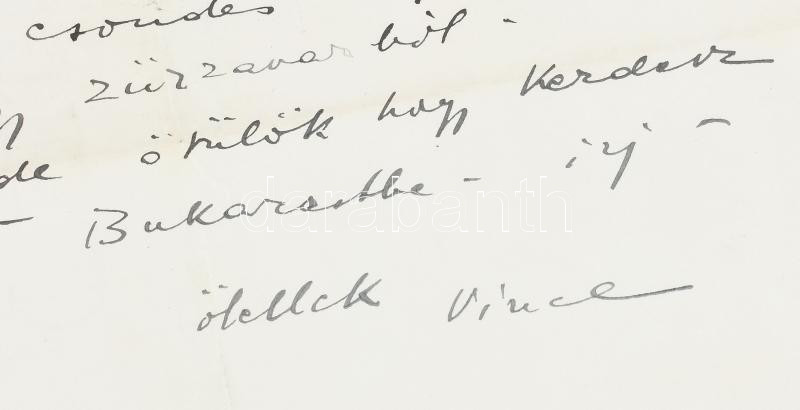 csondes
zürzavarból -
de örülök hogy kerdesz
- Bukarestbe - irj -
ölellek Vince
darabanth